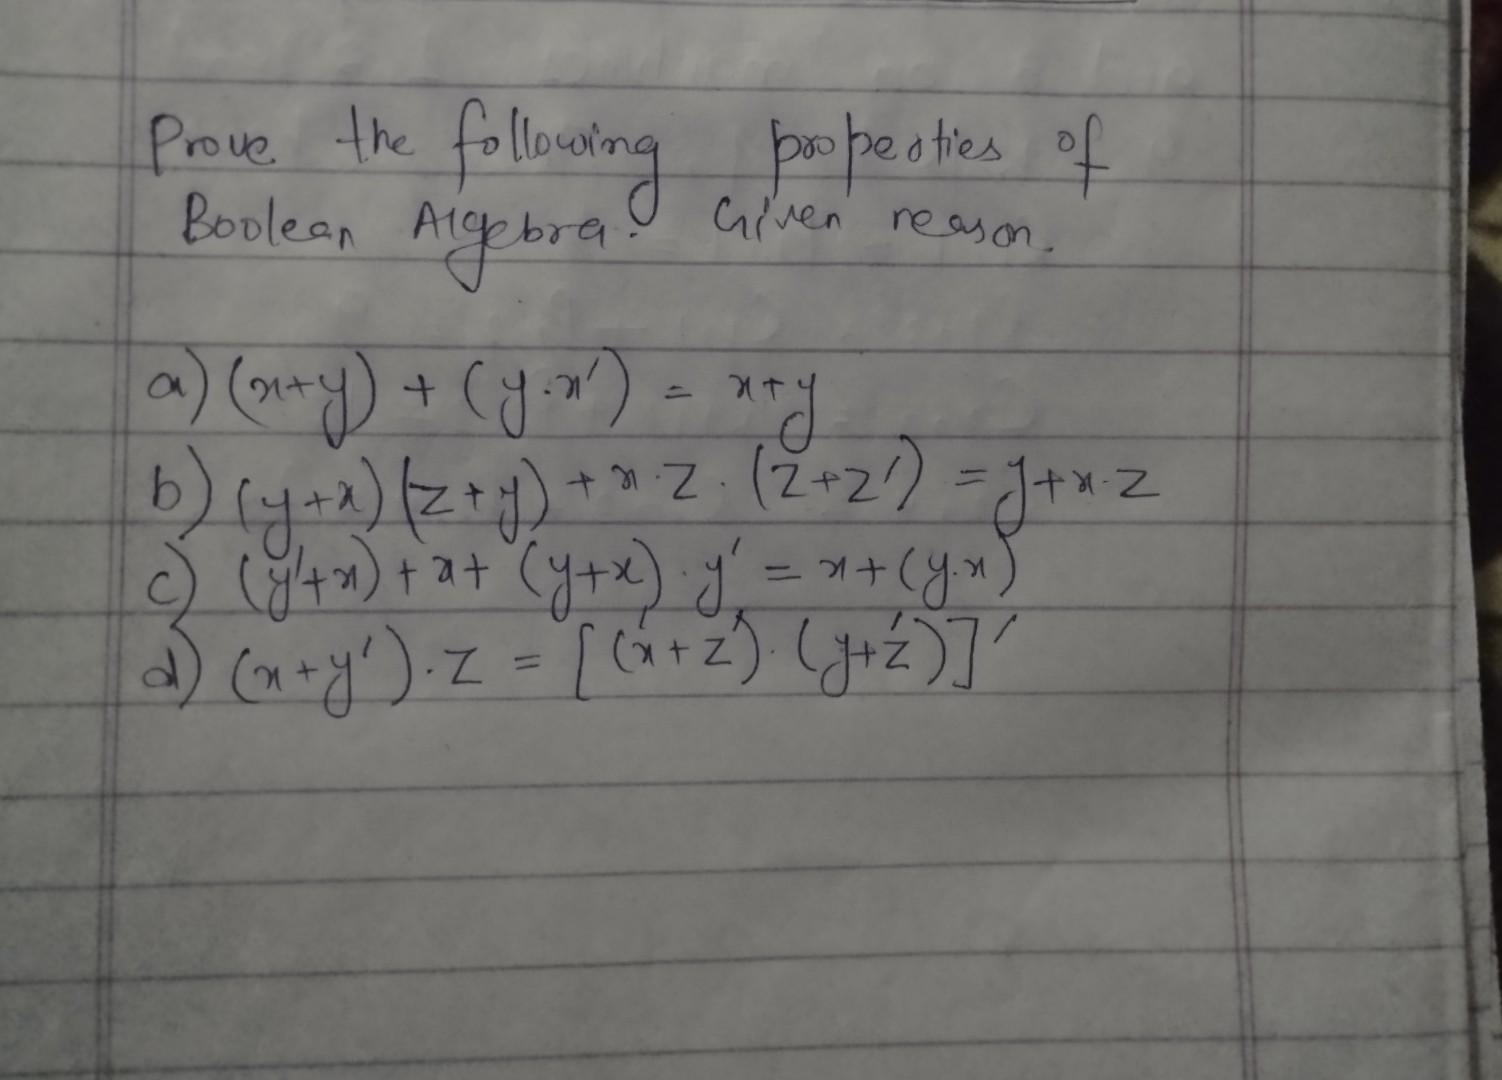 Prove the following properties of
Boolean Algebra. Given reason.
a) (x+y) + (y·x') = x+y
b) (y+x)(z+y) + x·z·(z+z') = y+x·z
c) (y'+x) + x + (y+x)·y' = x+(y·x)'
d) (x+y')·z = [(x'+z')·(y+z')]'